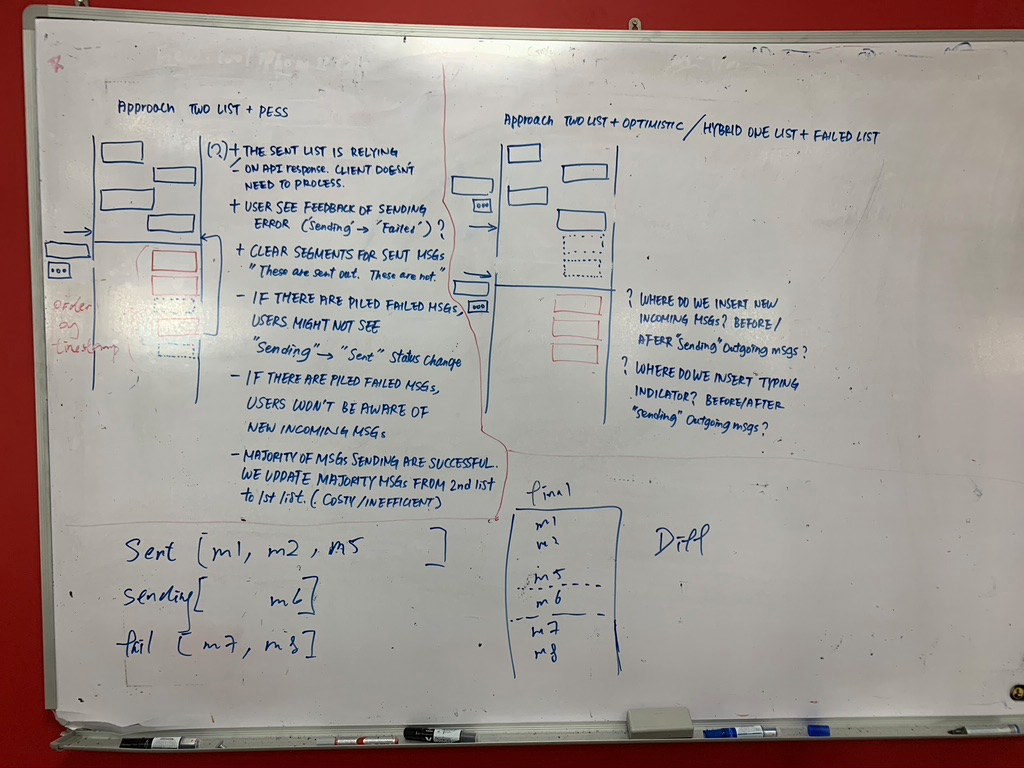 Approach TWO LIST + PESS
(?) + THE SENT LIST IS RELYING
- ON API response. CLIENT DOESN'T
NEED TO PROCESS.
+ USER SEE FEEDBACK OF SENDING
ERROR ('Sending' → 'Failed') ?
+ CLEAR SEGMENTS FOR SENT MSGs
"These are sent out. These are not."
- IF THERE ARE PILED FAILED MSGs,
USERS MIGHT NOT SEE
"Sending" → "Sent" Status change
- IF THERE ARE PILED FAILED MSGs,
USERS WON'T BE AWARE OF
NEW INCOMING MSGs
- MAJORITY OF MSGs SENDING ARE SUCCESSFUL.
WE UPDATE MAJORITY MSGs FROM 2nd list
to 1st list. (COSTY/INEFFICIENT)
order
by
timestamp
Approach TWO LIST + OPTIMISTIC / HYBRID ONE LIST + FAILED LIST
? WHERE DO WE INSERT NEW
INCOMING MSGs? BEFORE/
AFERR "Sending" Outgoing msgs?
? WHERE DO WE INSERT TYPING
INDICATOR? BEFORE/AFTER
"sending" Outgoing msgs?
Sent [m1, m2, m5 ]
sending [ m6]
fail [m7, m8]
final
m1
m2
m5
m6
m7
m8
Diff